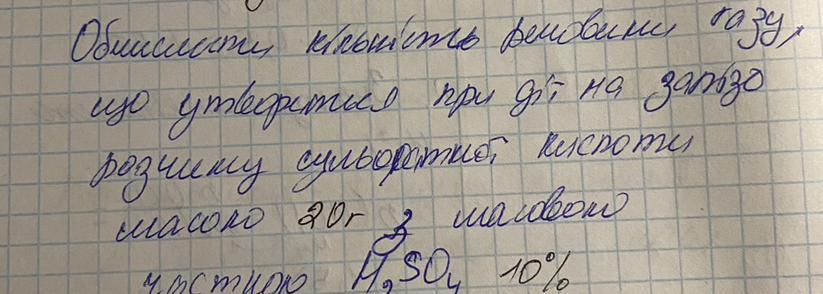 Обчислити кількість речовини газу,
що утвориться при дії на залізо
розчину сульфатної кислоти
масою 20г з масовою
часткою H₂SO₄ 10%